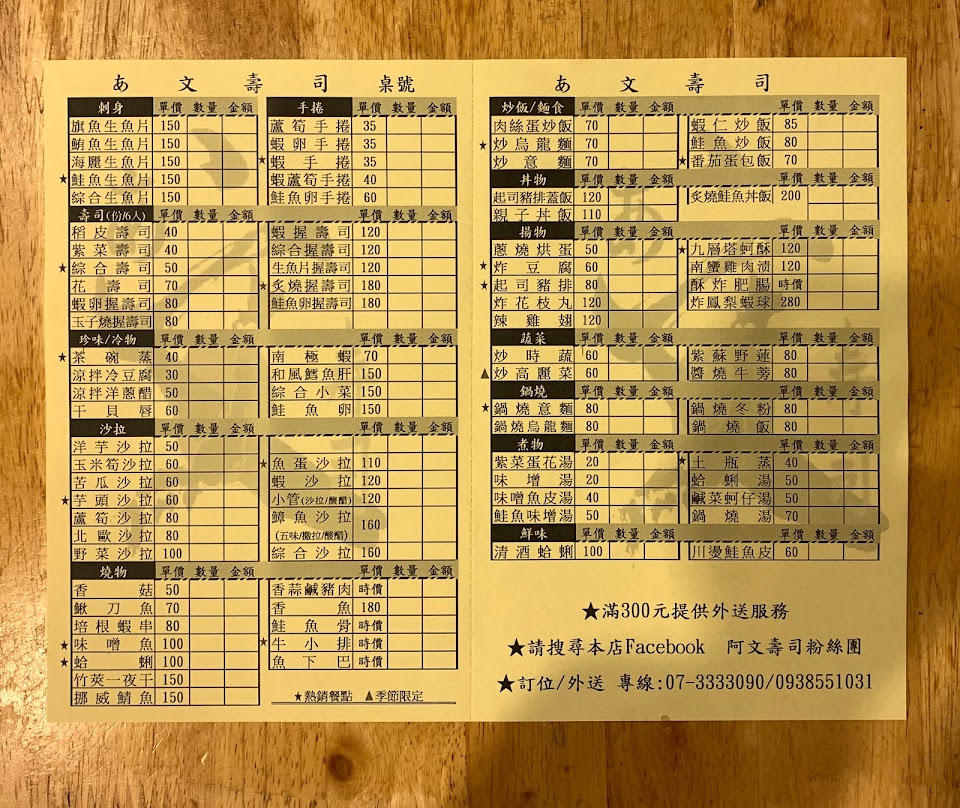 あ文壽司 桌號
刺身 單價 數量 金額
旗魚生魚片 150
鮪魚生魚片 150
海麗生魚片 150
★鮭魚生魚片 150
綜合生魚片 150
手捲 單價 數量 金額
蘆筍手捲 35
蝦卵手捲 35
★蝦手捲 35
蝦蘆筍手捲 40
鮭魚卵手捲 60
壽司(份/6入) 單價 數量 金額
稻皮壽司 40
紫菜壽司 40
★綜合壽司 50
花壽司 70
蝦卵握壽司 80
玉子燒握壽司 80
單價 數量 金額
蝦握壽司 120
綜合握壽司 120
生魚片握壽司 120
★炙燒握壽司 180
鮭魚卵握壽司 180
珍味/冷物 單價 數量 金額
★茶碗蒸 40
涼拌冷豆腐 30
涼拌洋蔥醋 50
干貝唇 60
單價 數量 金額
南極蝦 70
和風鱈魚肝 150
綜合小菜 150
鮭魚卵 150
沙拉 單價 數量 金額
洋芋沙拉 50
玉米筍沙拉 60
苦瓜沙拉 60
★芋頭沙拉 60
蘆筍沙拉 80
北歐沙拉 80
野菜沙拉 100
單價 數量 金額
★魚蛋沙拉 110
蝦沙拉 120
小管(沙拉/酸醋) 120
鱆魚沙拉 160
(五味/撒拉/酸醋)
綜合沙拉 160
燒物 單價 數量 金額
香菇 50
鰍刀魚 70
培根蝦串 80
★味噌魚 100
★蛤蜊 100
竹莢一夜干 150
挪威鯖魚 150
單價 數量 金額
香蒜鹹豬肉 時價
香魚 180
鮭魚骨 時價
★牛小排 時價
魚下巴 時價
★熱銷餐點 ▲季節限定
あ文壽司
炒飯/麵食 單價 數量 金額
肉絲蛋炒飯 70
★炒烏龍麵 70
炒意麵 70
單價 數量 金額
蝦仁炒飯 85
鮭魚炒飯 80
★番茄蛋包飯 70
丼物 單價 數量 金額
起司豬排蓋飯 120
親子丼飯 110
單價 數量 金額
炙燒鮭魚丼飯 200
揚物 單價 數量 金額
蔥燒烘蛋 50
★炸豆腐 60
★起司豬排 80
炸花枝丸 120
辣雞翅 120
單價 數量 金額
★九層塔蚵酥 120
南蠻雞肉漬 120
酥炸肥腸 時價
炸鳳梨蝦球 280
蔬菜 單價 數量 金額
炒時蔬 60
▲炒高麗菜 60
單價 數量 金額
紫蘇野蓮 80
醬燒牛蒡 80
鍋燒 單價 數量 金額
★鍋燒意麵 80
鍋燒烏龍麵 80
單價 數量 金額
鍋燒冬粉 80
鍋燒飯 80
煮物 單價 數量 金額
紫菜蛋花湯 20
味增湯 20
味噌魚皮湯 40
鮭魚味增湯 50
單價 數量 金額
★土瓶蒸 40
蛤蜊湯 50
鹹菜蚵仔湯 50
鍋燒湯 70
鮮味 單價 數量 金額
清酒蛤蜊 100
單價 數量 金額
川燙鮭魚皮 60
★滿300元提供外送服務
★請搜尋本店Facebook 阿文壽司粉絲團
★訂位/外送 專線:07-3333090/0938551031